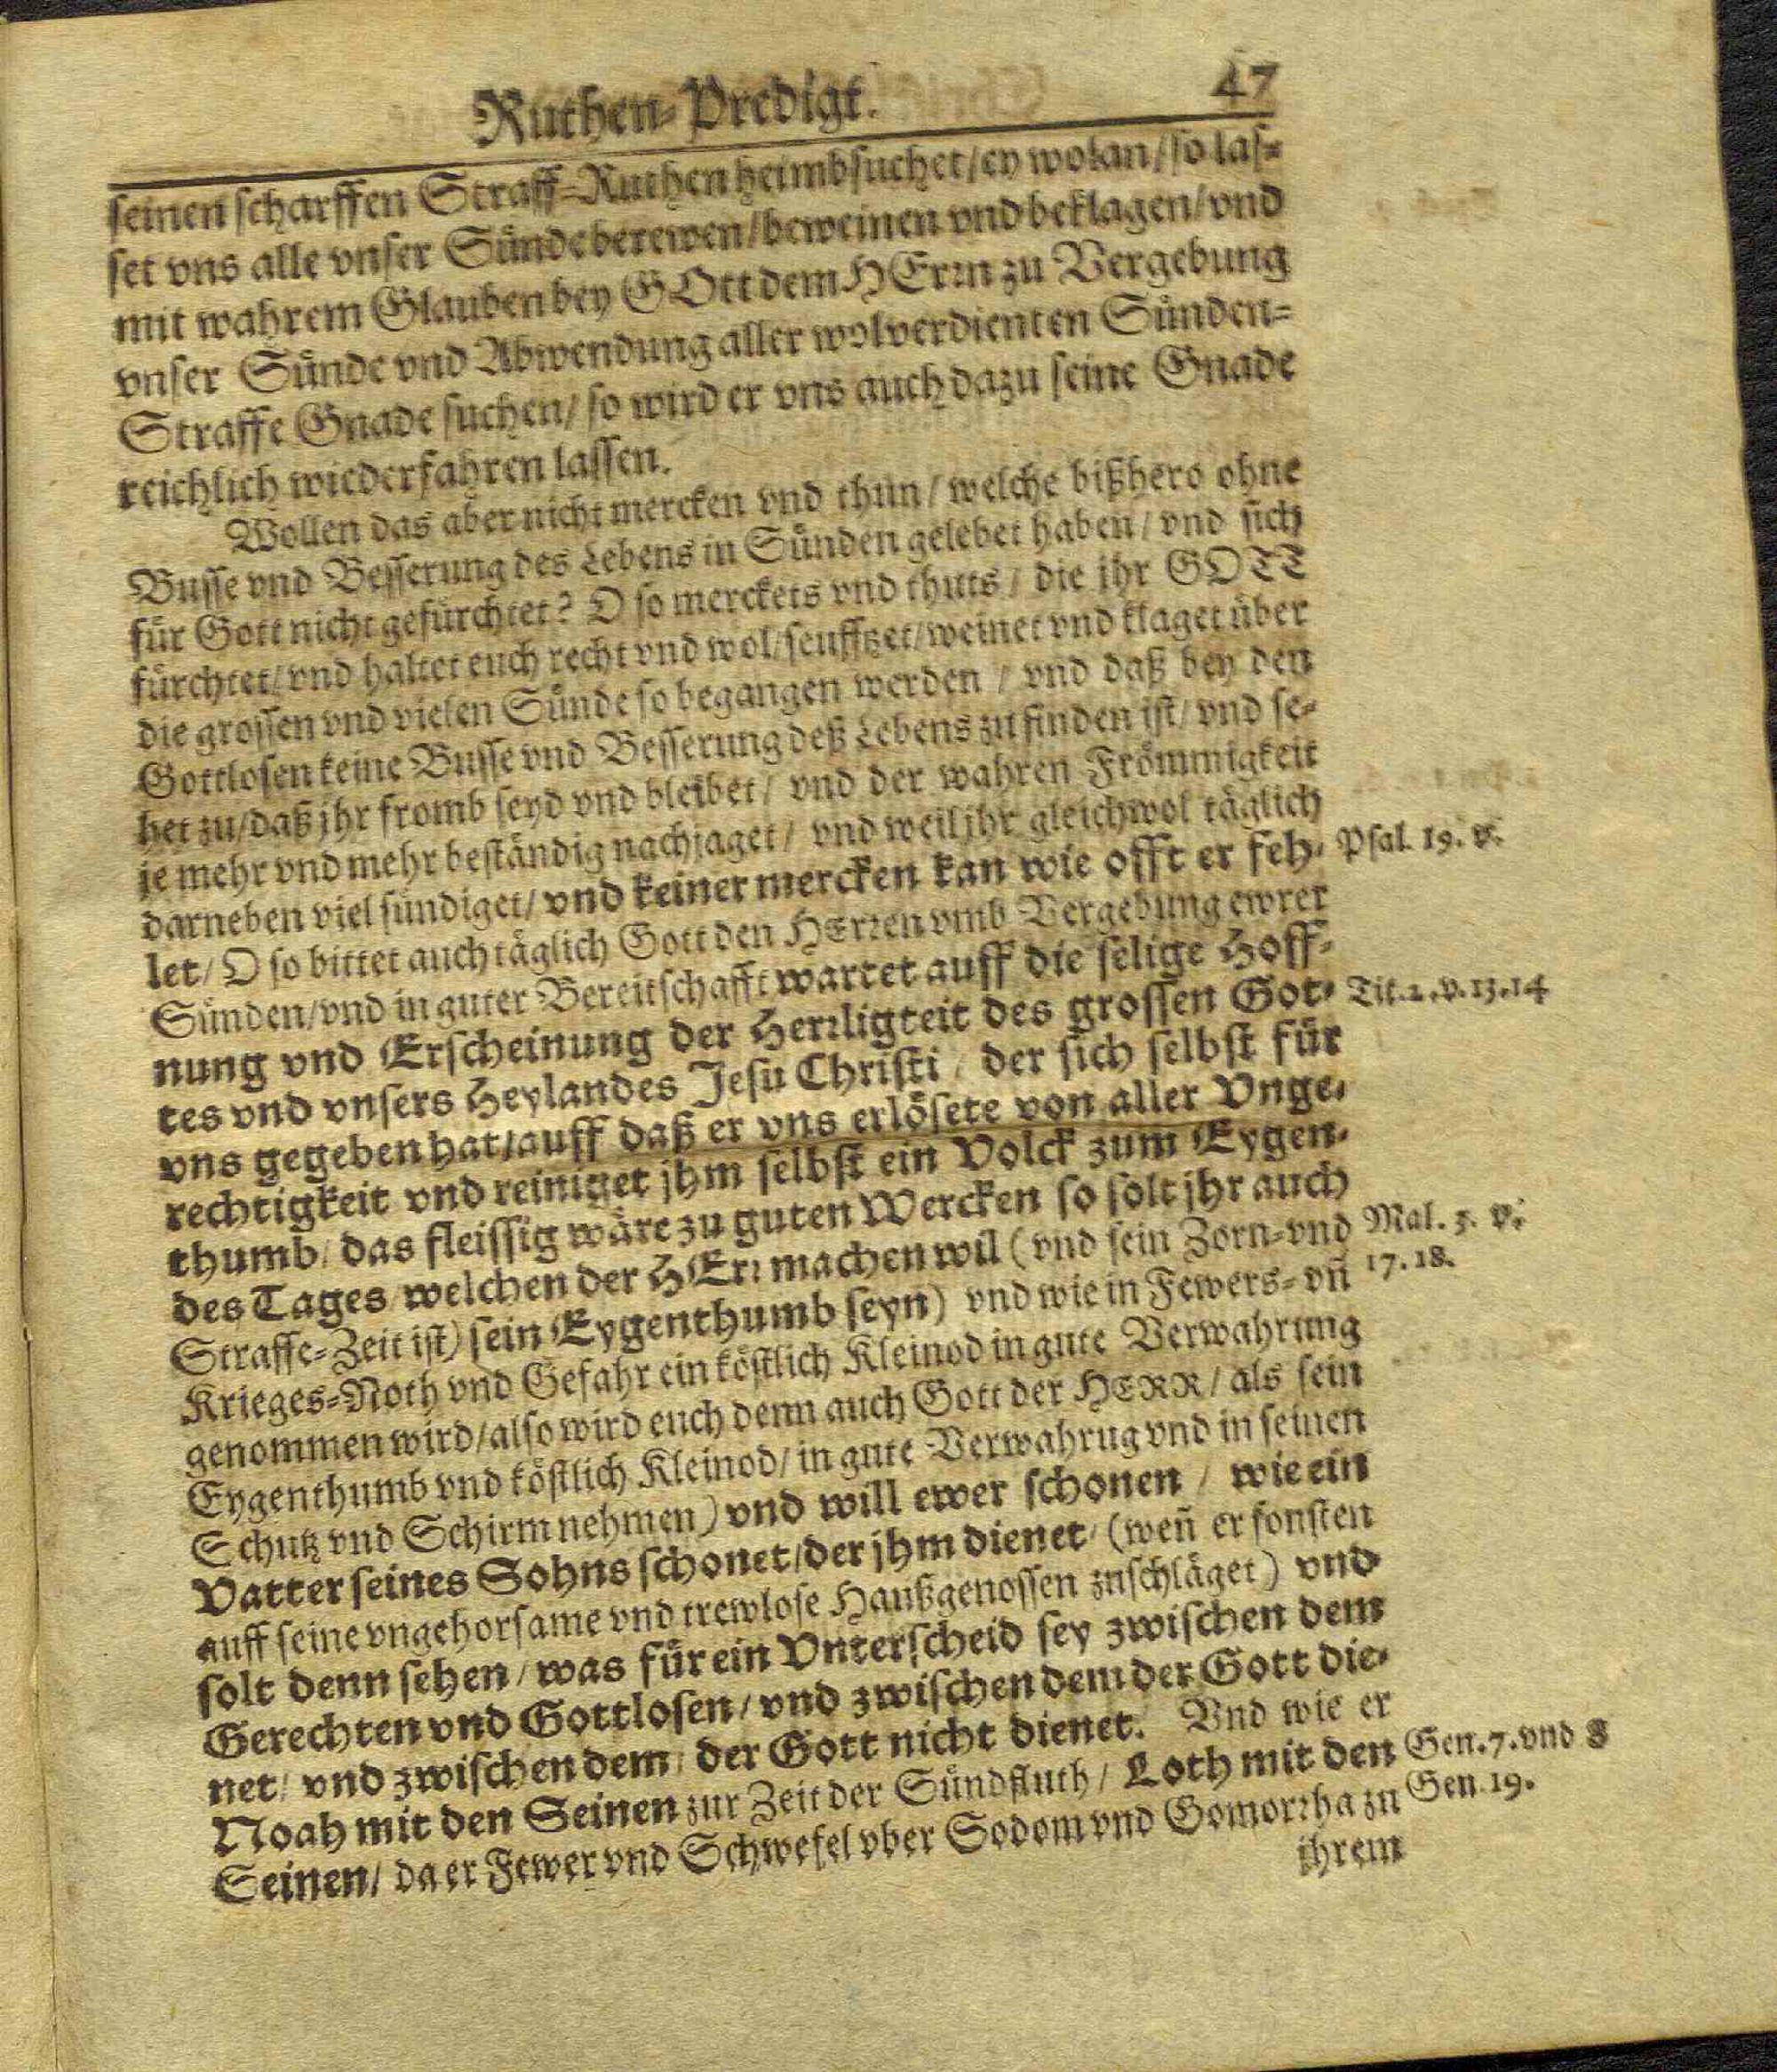 Ruthen-Predigt. 47
seinen scharffen Straff-Ruthen heimbsuchet/ ey wolan/ so las-
set vns alle vnser Sünde berewen/ beweinen vnd beklagen/ vnd
mit wahrem Glauben bey GOtt dem HErrn zu Vergebung
vnser Sünde vnd Abwendung aller wolverdienten Sünden-
Straffe Gnade suchen/ so wird er vns auch dazu seine Gnade
reichlich wiederfahren lassen.
Wollen das aber nicht mercken vnd thun/ welche bißhero ohne
Busse vnd Besserung des Lebens in Sünden gelebet haben/ vnd sich
für Gott nicht gefürchtet? O so merckets vnd thuts/ die ihr GOTT
fürchtet/ vnd haltet euch recht vnd wol/ seufftzet/ weinet vnd klaget über
die grossen vnd vielen Sünde so begangen werden / vnd daß bey den
Gottlosen keine Busse vnd Besserung deß Lebens zu finden ist/ vnd se-
het zu/ daß jhr fromb seyd vnd bleibet/ vnd der wahren Frömmigkeit
je mehr vnd mehr beständig nachjaget/ vnd weil jhr gleichwol täglich
darneben viel sündiget/ vnd keiner mercken kan wie offt er feh- Psal. 19. v.
let/ O so bittet auch täglich Gott den HErren vmb Vergebung ewrer
Sünden/ vnd in guter Bereitschafft wartet auff die selige Hoff-
nung vnd Erscheinung der Herrligteit des grossen Got- Tit. 2. v. 13. 14
tes vnd vnsers Heylandes Jesu Christi / der sich selbst für
vns gegeben hat/ auff daß er vns erlösete von aller Vnge-
rechtigkeit vnd reiniget jhm selbst ein Volck zum Eygen-
thumb/ das fleissig wäre zu guten Wercken so solt jhr auch
des Tages welchen der HErr machen wil (vnd sein Zorn-vnd Mal. 3. v.
Straffe-Zeit ist) sein Eygenthumb seyn) vnd wie in Fewers-vñ 17. 18.
Krieges-Noth vnd Gefahr ein köstlich Kleinod in gute Verwahrung
genommen wird/ also wird euch denn auch Gott der HERR/ als sein
Eygenthumb vnd köstlich Kleinod/ in gute Verwahrug vnd in seinen
Schutz vnd Schirm nehmen) vnd will ewer schonen / wie ein
Vatter seines Sohns schonet/ der jhm dienet/ (weñ er sonsten
auff seine vngehorsame vnd trewlose Haußgenossen znschläget) vnd
solt denn sehen/ was für ein Vnterscheid sey zwischen dem
Gerechten vnd Gottlosen/ vnd zwischen dem der Gott die-
net/ vnd zwischen dem/ der Gott nicht dienet. Vnd wie er
Noah mit den Seinen zur Zeit der Sündfluth/ Loth mit den Gen. 7. vnd 8
Seinen/ da er Fewer vnd Schwefel vber Sodom vnd Gomorrha zu Gen. 19.
ihrem